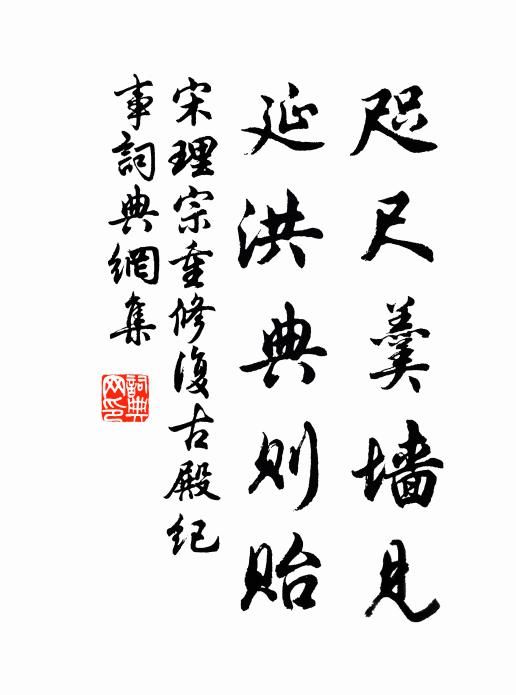 咫尺羹墙見
延洪典则贻
宋理宗重修復古殿纪
事詞典網集
詞典网印